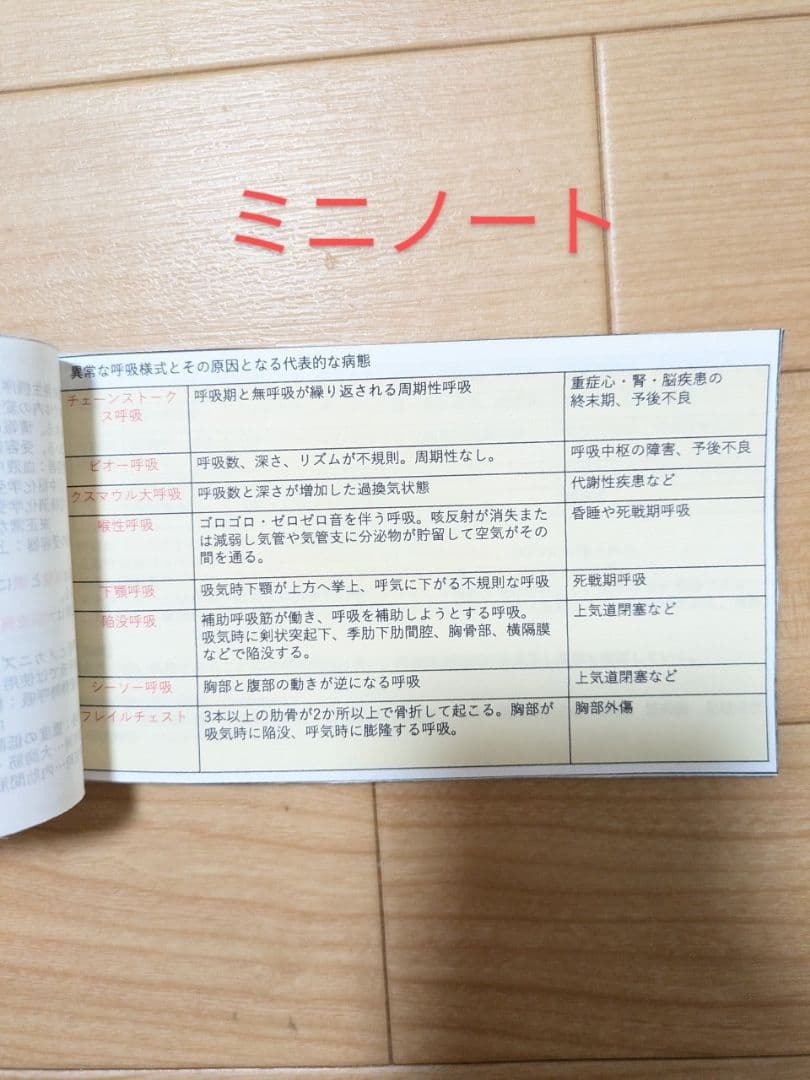 ミニノート
異常な呼吸様式とその原因となる代表的な病態
チェーンストーク
ス呼吸
呼吸期と無呼吸が繰り返される周期性呼吸
重症心・腎・脳疾患の
終末期、予後不良
ビオー呼吸
呼吸数、深さ、リズムが不規則。周期性なし。
呼吸中枢の障害、予後不良
クスマウル大呼吸
呼吸数と深さが増加した過換気状態
代謝性疾患など
喉性呼吸
ゴロゴロ・ゼロゼロ音を伴う呼吸。咳反射が消失また
は減弱し気管や気管支に分泌物が貯留して空気がその
間を通る。
昏睡や死戦期呼吸
下顎呼吸
吸気時下顎が上方へ挙上、呼気に下がる不規則な呼吸
死戦期呼吸
陥没呼吸
補助呼吸筋が働き、呼吸を補助しようとする呼吸。
吸気時に剣状突起下、季肋下肋間腔、胸骨部、横隔膜
などで陥没する。
上気道閉塞など
シーソー呼吸
胸部と腹部の動きが逆になる呼吸
上気道閉塞など
フレイルチェスト
3本以上の肋骨が2か所以上で骨折して起こる。胸部が
吸気時に陥没、呼気時に膨隆する呼吸。
胸部外傷